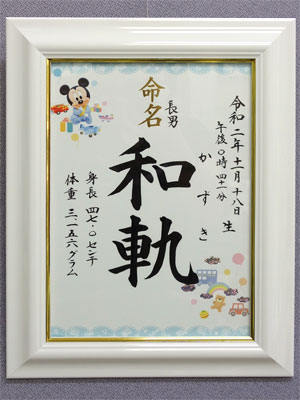 令和二年十一月十八日 生
午後〇時四十一分
かずき
命名
長男
和軌
身長 四七・〇センチ
体重 三、一五六グラム